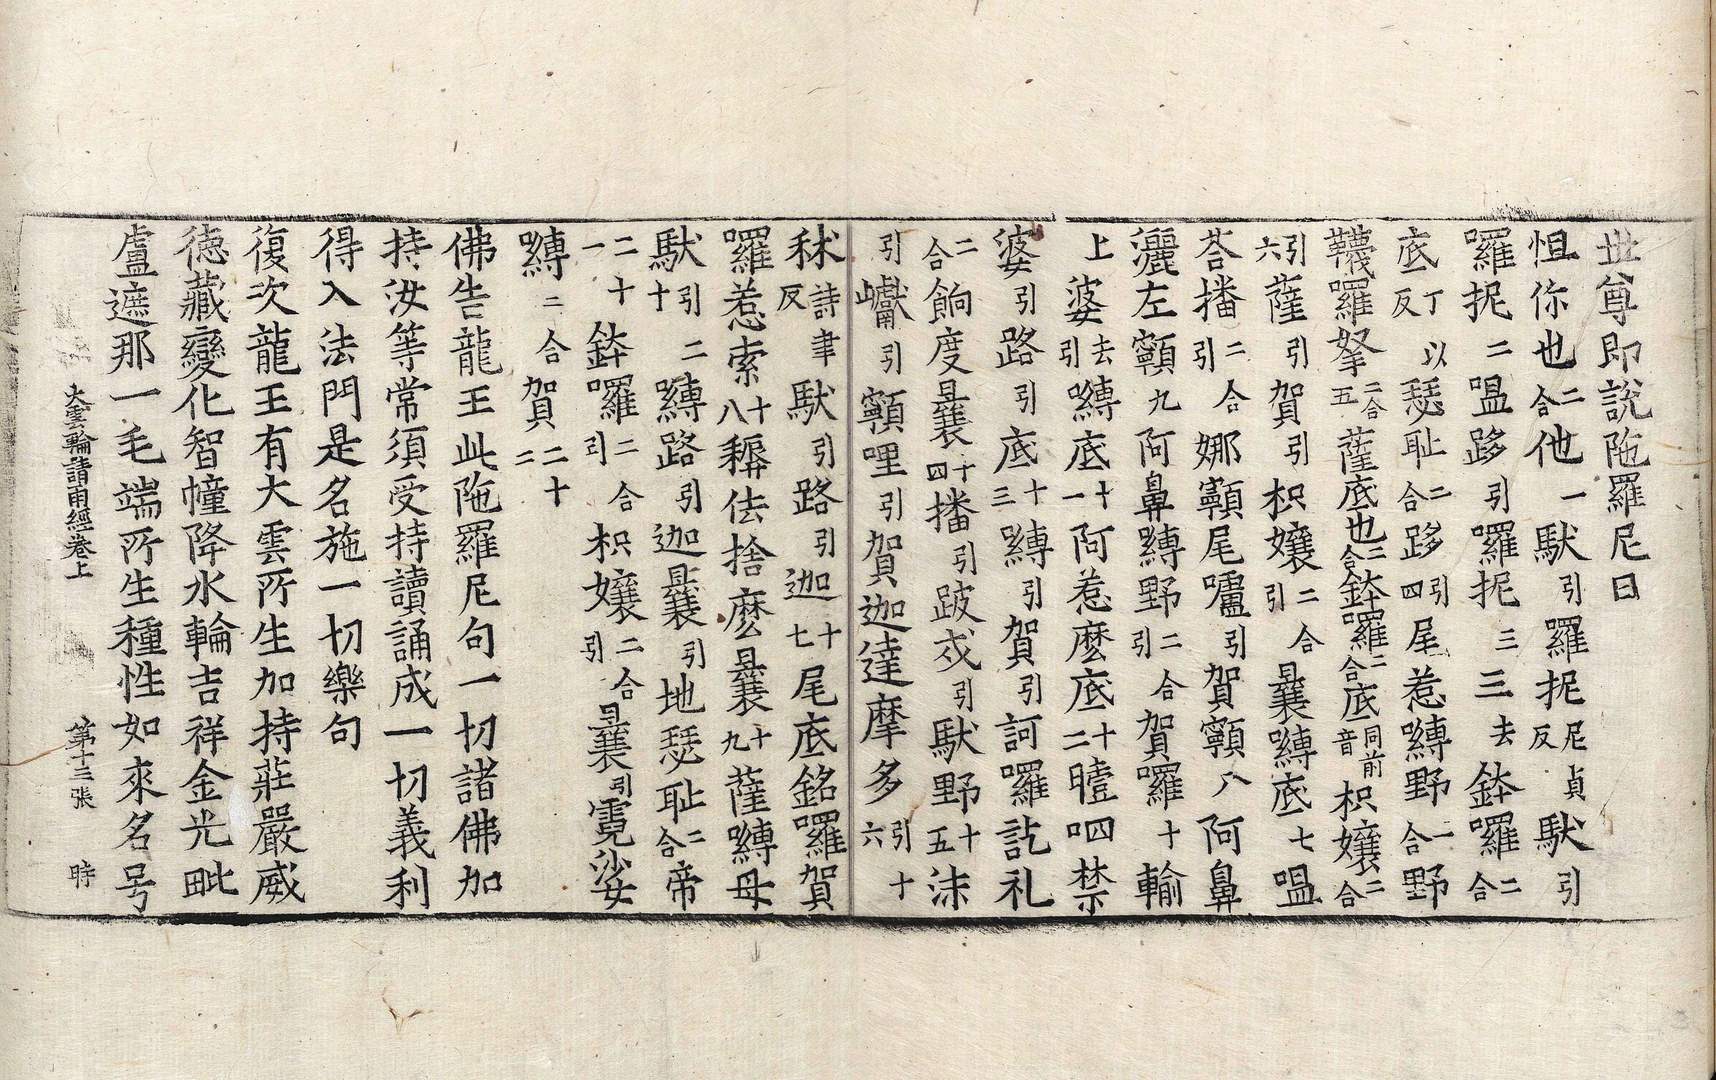 世尊即說陁羅尼曰
怛你也二合他一馱引羅抳尼貞反馱引
囉抳二嗢跢引囉抳三三去鉢囉二合
底丁以反瑟耻二合跢引四尾惹嚩野一合野
韈囉拏二合五薩底也二合鉢囉二合底同前音枳孃二合
引六薩引賀引枳孃二合引曩嚩底七嗢
荅播二合引娜顊尾嚧引賀顊八阿鼻
灑左顊九阿鼻嚩野二合引賀囉十輸
上婆去引嚩底十一阿惹麽底十二曀呬禁
婆引路引底十三嚩引賀引訶囉訖礼
二合餉度曩十四播引跛㦲引馱野十五沫
引巘引顊哩引賀迦達摩多引十六
秫詩聿反馱引路引迦十七尾底銘囉賀
囉惹索十八耨佉捨麽曩十九薩嚩母
馱引二十嚩路引迦曩引地瑟耻二合帝
二十一鉢囉二合引枳孃二合引曩引霓娑
嚩二合賀二十二
佛告龍王此陁羅尼句一切諸佛加
持汝等常須受持讀誦成一切義利
得入法門是名施一切樂句
復次龍王有大雲所生加持莊嚴威
德藏變化智幢降水輪吉祥金光毗
盧遮那一毛端所生種性如來名号
大雲輪請雨經卷上 第十三張 時